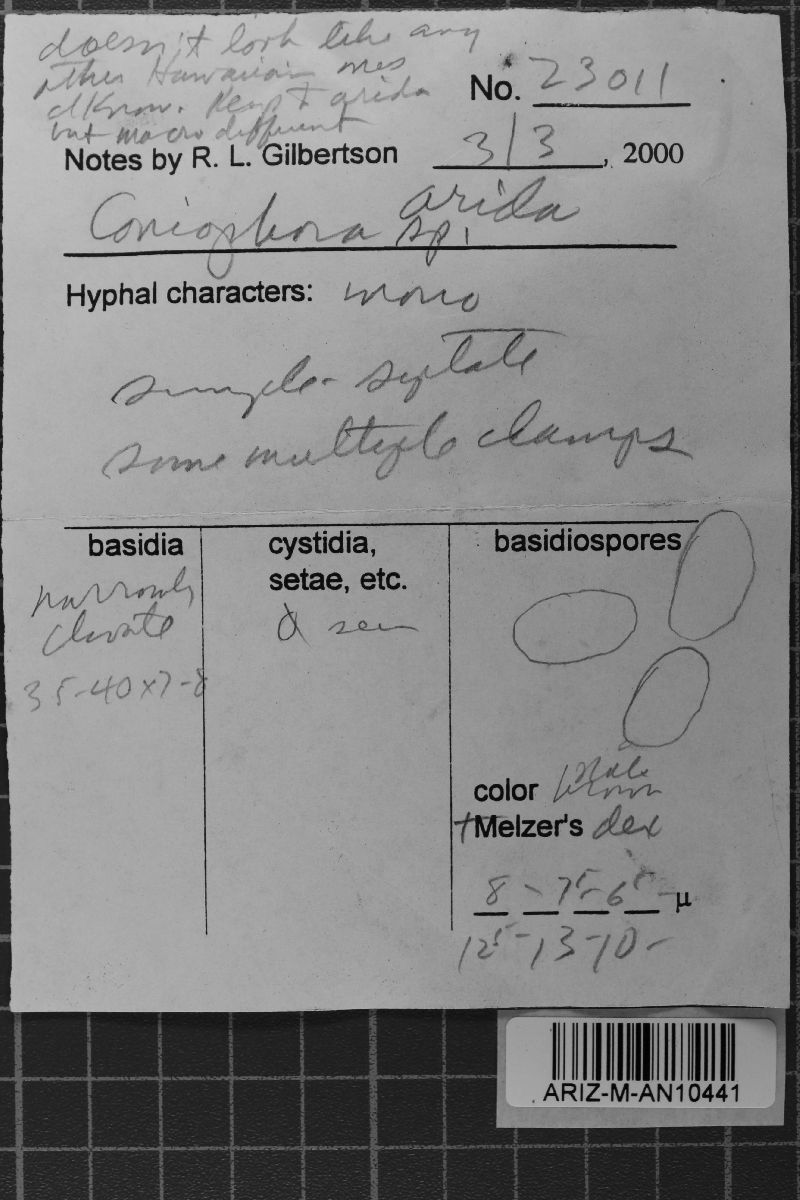 doesn't look like any
other Hawaiian ones
I know. Keys to arida
but macro different
No. 23011
Notes by R. L. Gilbertson 3/3, 2000
arida
Coniophora sp.
Hyphal characters: mono
simple-septate
some multiple clamps
basidia
cystidia,
setae, etc.
basidiospores
narrowly
clavate
35-40x7-8
seen
color pale
brown
+Melzer's dex
8 - 7⁵ - 6⁵ - µ
12⁵ - 13 - 10 -
ARIZ-M-AN10441